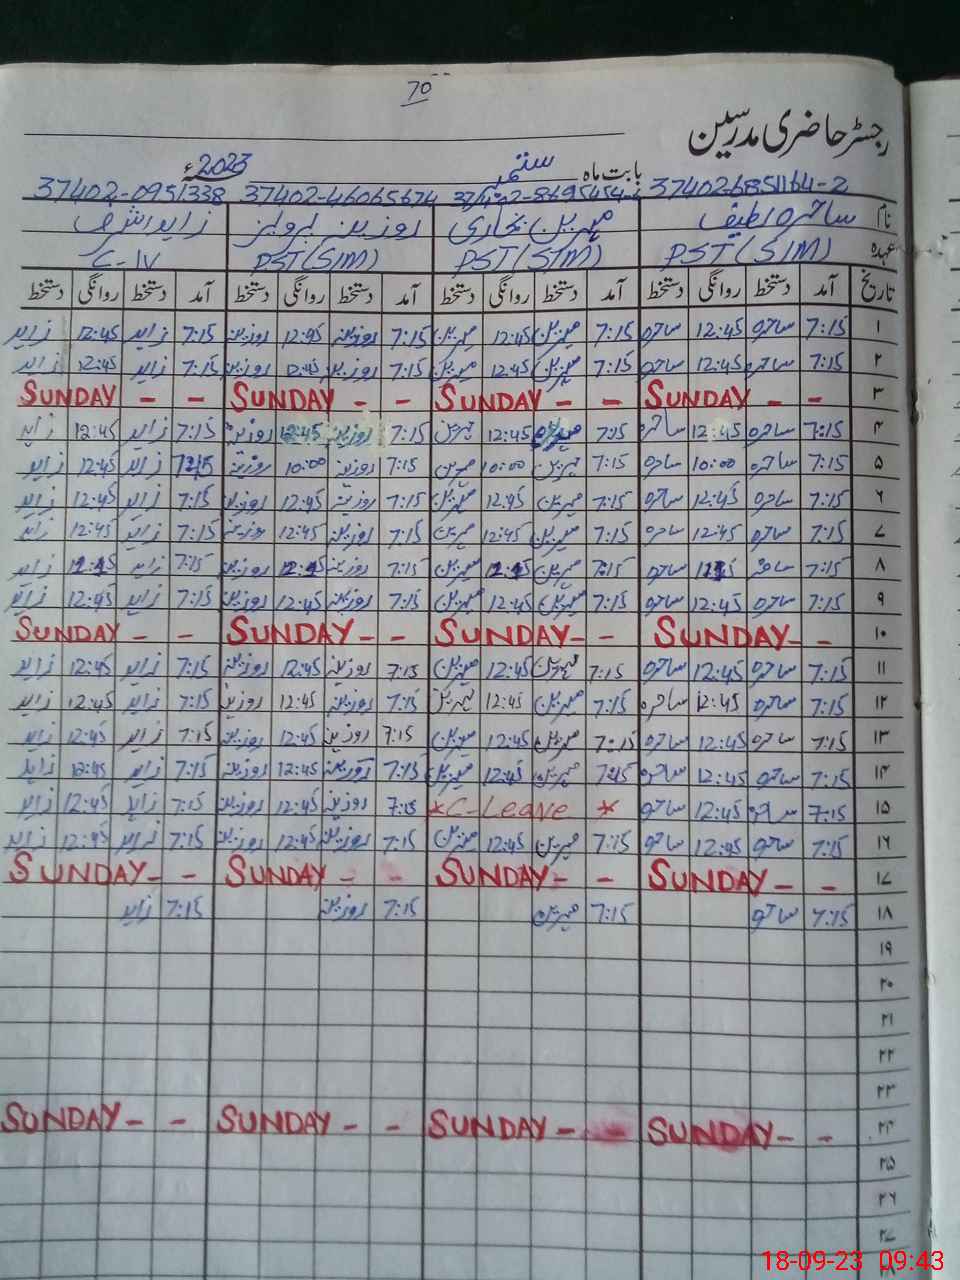 70
رجسٹر حاضری مدرسین
بابت ماہ ستمبر 2023ء
37402-6851164-2 37402-46065674 37402-0951338
نام ساحرہ لطیف مہرین بخاری روزینہ
عہدہ PST(SIM) PST(SIM) PST(SIM) C-IV
تاریخ آمد دستخط روانگی دستخط آمد دستخط روانگی دستخط آمد دستخط روانگی دستخط آمد دستخط روانگی دستخط
۱ 7:15 ساحرہ 12:45 ساحرہ 7:15 مہرین 12:45 مہرین 7:15 روزینہ 12:45 روزینہ 7:15 زاہد 12:45 زاہد
۲ 7:15 ساحرہ 12:45 ساحرہ 7:15 مہرین 12:45 مہرین 7:15 روزینہ 12:45 روزینہ 7:15 زاہد 12:45 زاہد
۳ SUNDAY - - SUNDAY - - SUNDAY - - SUNDAY - -
۴ 7:15 ساحرہ 12:45 ساحرہ 7:15 مہرین 12:45 مہرین 7:15 روزینہ 12:45 روزینہ 7:15 زاہد 12:45 زاہد
۵ 7:15 ساحرہ 10:00 ساحرہ 7:15 مہرین 10:00 مہرین 7:15 روزینہ 10:00 روزینہ 7:15 زاہد 12:45 زاہد
۶ 7:15 ساحرہ 12:45 ساحرہ 7:15 مہرین 12:45 مہرین 7:15 روزینہ 12:45 روزینہ 7:15 زاہد 12:45 زاہد
۷ 7:15 ساحرہ 12:45 ساحرہ 7:15 مہرین 12:45 مہرین 7:15 روزینہ 12:45 روزینہ 7:15 زاہد 12:45 زاہد
۸ 7:15 ساحرہ ساحرہ 7:15 مہرین مہرین 7:15 روزینہ روزینہ 7:15 زاہد زاہد
۹ 7:15 ساحرہ 12:45 ساحرہ 7:15 مہرین 12:45 مہرین 7:15 روزینہ 12:45 روزینہ 7:15 زاہد 12:45 زاہد
۱۰ SUNDAY - - SUNDAY - - SUNDAY - - SUNDAY - -
۱۱ 7:15 ساحرہ 12:45 ساحرہ 7:15 مہرین 12:45 مہرین 7:15 روزینہ 12:45 روزینہ 7:15 زاہد 12:45 زاہد
۱۲ 7:15 ساحرہ 12:45 ساحرہ 7:15 مہرین 12:45 مہرین 7:15 روزینہ 12:45 روزینہ 7:15 زاہد 12:45 زاہد
۱۳ 7:15 ساحرہ 12:45 ساحرہ 7:15 مہرین 12:45 مہرین 7:15 روزینہ 12:45 روزینہ 7:15 زاہد 12:45 زاہد
۱۴ 7:15 ساحرہ 12:45 ساحرہ مہرین 12:45 مہرین 7:15 روزینہ 12:45 روزینہ 7:15 زاہد 12:45 زاہد
۱۵ 7:15 ساحرہ 12:45 ساحرہ * C-Leave * 7:15 روزینہ 12:45 روزینہ 7:15 زاہد 12:45 زاہد
۱۶ 7:15 ساحرہ 12:45 ساحرہ 7:15 مہرین 12:45 مہرین 7:15 روزینہ 12:45 روزینہ 7:15 زاہد 12:45 زاہد
۱۷ SUNDAY - - SUNDAY - - SUNDAY - - SUNDAY - -
۱۸ 7:15 ساحرہ 7:15 مہرین 7:15 روزینہ 7:15 زاہد
۱۹
۲۰
۲۱
۲۲
۲۳
۲۴ SUNDAY - - SUNDAY - - SUNDAY - - SUNDAY - -
۲۵
۲۶
۲۷
18-09-23 09:43